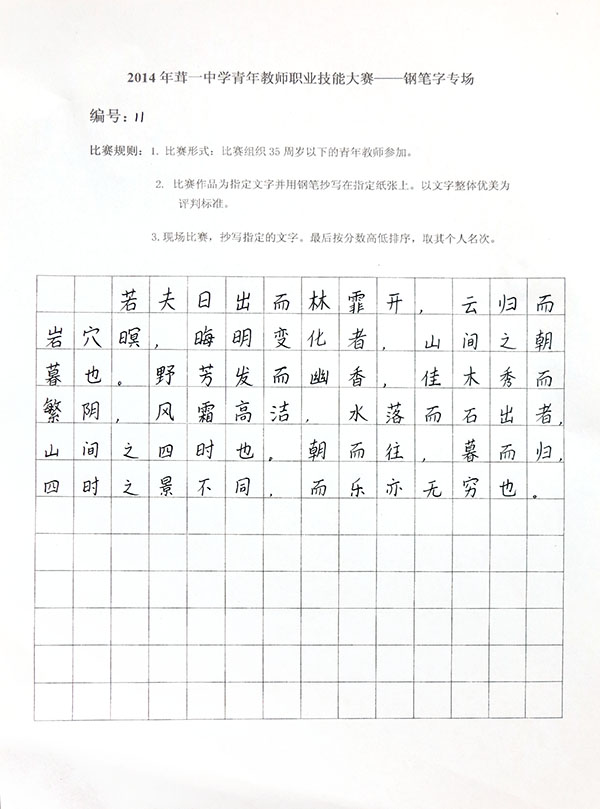 2014 年茸一中学青年教师职业技能大赛——钢笔字专场
编号：11
比赛规则：1. 比赛形式：比赛组织 35 周岁以下的青年教师参加。
2. 比赛作品为指定文字并用钢笔抄写在指定纸张上。以文字整体优美为
评判标准。
3.现场比赛，抄写指定的文字。最后按分数高低排序，取其个人名次。
若夫日出而林霏开，云归而
岩穴暝，晦明变化者，山间之朝
暮也。野芳发而幽香，佳木秀而
繁阴，风霜高洁，水落而石出者，
山间之四时也。朝而往，暮而归，
四时之景不同，而乐亦无穷也。